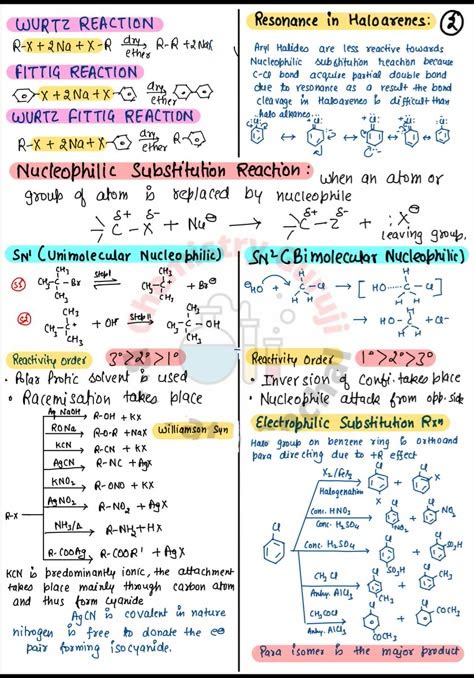 WURTZ REACTION
R-X + 2Na + X-R dry ether R-R + 2NaX
FITTIG REACTION
-X + 2Na + X- dry ether
WURTZ FITTIG REACTION
R-X + 2Na + X- dry ether R-
Resonance in Haloarenes: 2
Aryl Halides are less reactive towards
Nucleophilic substitution reaction because
C-Cl bond acquire partial double bond
due to resonance as a result the bond
cleavage in Haloarenes is difficult than
halo alkanes.
Nucleophilic Substitution Reaction: when an atom or
group of atom is replaced by nucleophile
δ+ δ- δ+ δ-
-C-X + Nu⊖ → -C-Z + :X⊖
leaving group.
SN1 (Unimolecular Nucleophilic)
CH3
CH3-C-Br Step I CH3 C+ CH3 + Br⊖
CH3
CH3-C+ + OH⊖ Step II CH3-C-OH
CH3
Reactivity order 3°>2°>1°
• Polar Protic solvent is used
• Racemisation takes place
SN2 (Bimolecular Nucleophilic)
HO⊖ + C-Cl → [HO....C....Cl]
HO-C
Reactivity Order 1°>2°>3°
• Inversion of Confi. takes place
• Nucleophile attack from opp. side
R-X
Aq NaOH R-OH + KX
RONa R-O-R + NaX Williamson Syn
KCN R-CN + KX
AgCN R-NC + AgX
KNO2 R-ONO + KX
AgNO2 R-NO2 + AgX
NH3/Δ R-NH2 + HX
R-COOAg R-COOR' + AgX
KCN is predominantly ionic, the attachment
takes place mainly through carbon atom
and thus form cyanide
AgCN is covalent in nature
nitrogen is free to donate the e⊖
pair forming isocyanide.
Electrophilic Substitution Rxn
Halo group on benzene ring is ortho and
para directing due to +R effect
Cl
X2/FeX3
Halogenation
Cl X Cl X
Conc. HNO3
Conc. H2SO4
Cl NO2 Cl NO2
Conc. H2SO4
Cl SO3H Cl SO3H
CH3Cl
Anhy. AlCl3
Cl CH3 Cl CH3
CH3COCl
Anhy. AlCl3
Cl COCH3 Cl COCH3
Para isomer is the major product